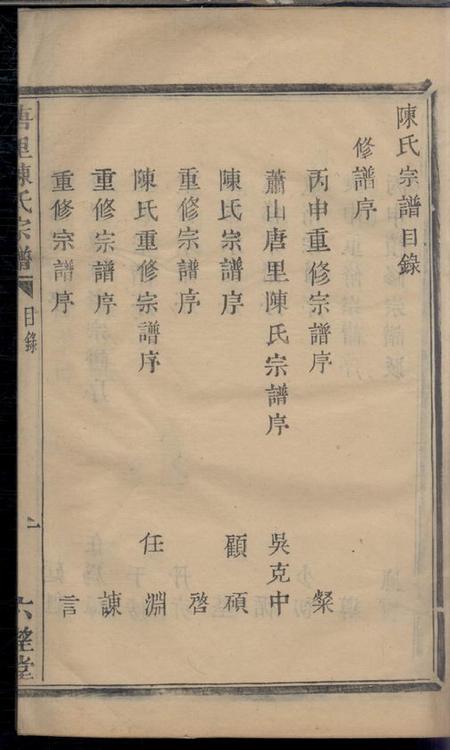 陳氏宗譜目錄
修譜序
丙申重修宗譜序 粲
蕭山唐里陳氏宗譜序 吳克中
陳氏宗譜序 顧碩
重修宗譜序 啓
陳氏重修宗譜序 任淵
重修宗譜序 諌
重修宗譜序 言
唐里陳氏宗譜 目錄 一 六莖堂